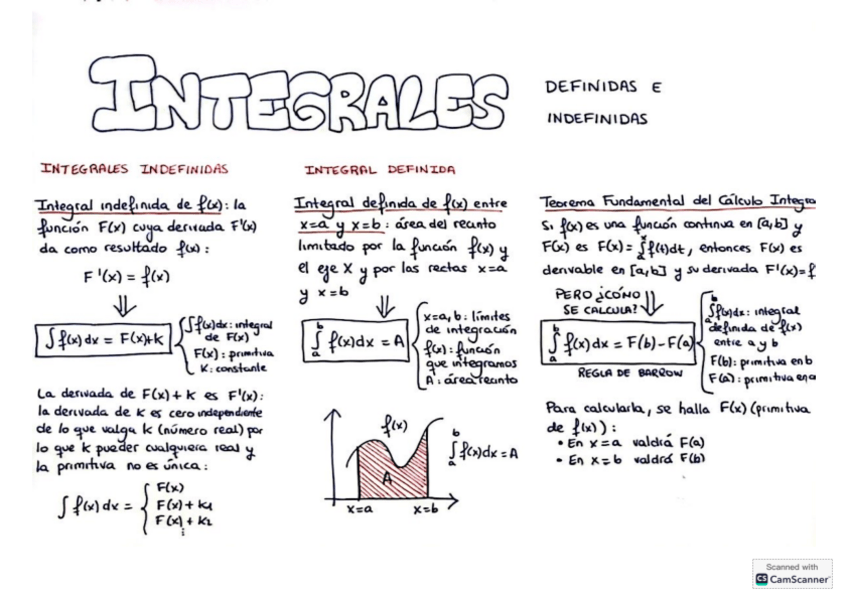 INTEGRALES
DEFINIDAS E
INDEFINIDAS
INTEGRALES INDEFINIDAS
Integral indefinida de f(x): la
función F(x) cuya derivada F'(x)
da como resultado f(x):
F'(x) = f(x)
∫f(x)dx = F(x)+K
∫f(x)dx: integral
de F(x)
F(x): primitiva
K: constante
La derivada de F(x)+K es F'(x):
la derivada de K es cero independiente
de lo que valga K (número real) por
lo que K puede ser cualquiera real y
la primitiva no es única:
∫f(x)dx =
F(x)
F(x)+K1
F(x)+K2
INTEGRAL DEFINIDA
Integral definida de f(x) entre
x=a y x=b: área del recinto
limitado por la función f(x) y
el eje X y por las rectas x=a
y x=b
∫ₐᵇ f(x)dx = A
x=a,b: límites
de integración
f(x): función
que integramos
A: área recinto
f(x)
∫ₐᵇ f(x)dx = A
A
x=a x=b
Teorema Fundamental del Cálculo Integra
Si f(x) es una función continua en [a,b] y
F(x) es F(x)=∫ₐˣ f(t)dt, entonces F(x) es
derivable en [a,b] y su derivada F'(x)=f
PERO ¿CÓNO
SE CALCULA?
∫ₐᵇ f(x)dx = F(b)-F(a)
REGLA DE BARROW
∫ₐᵇ f(x)dx: integral
definida de f(x)
entre a y b
F(b): primitiva en b
F(a): primitiva en a
Para calcularla, se halla F(x) (primitiva
de f(x)):
• En x=a valdrá F(a)
• En x=b valdrá F(b)
Scanned with
CS CamScanner